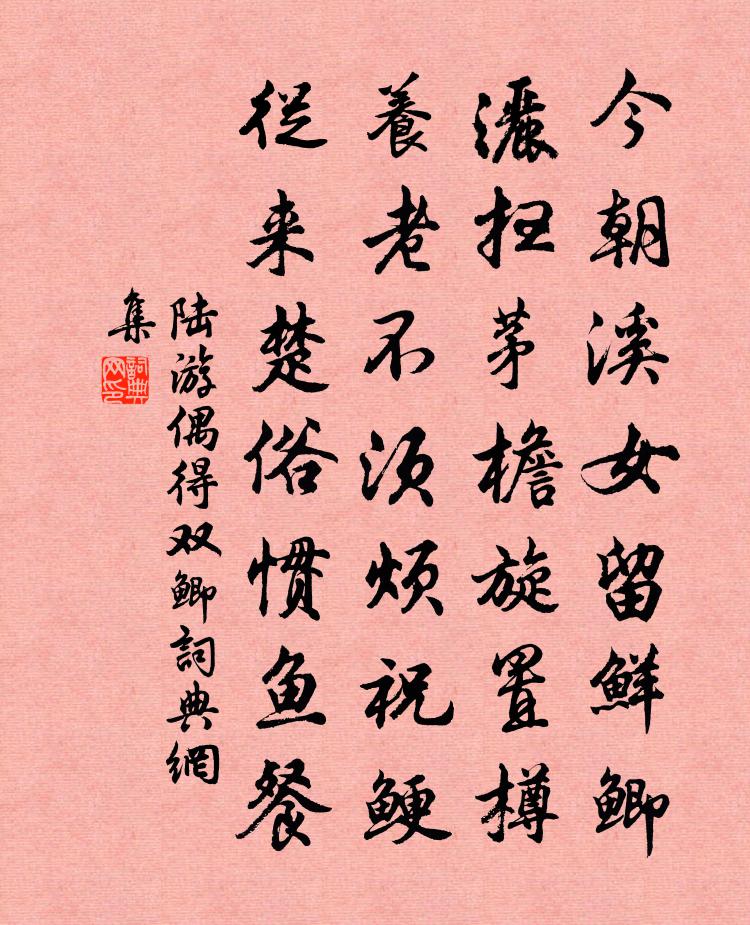 今朝溪女留鮮鲫
灑扫茅檐旋置樽
養老不須烦祝鲠
從来楚俗惯鱼餐
陆游偶得双鲫詞典網
集
詞典网印